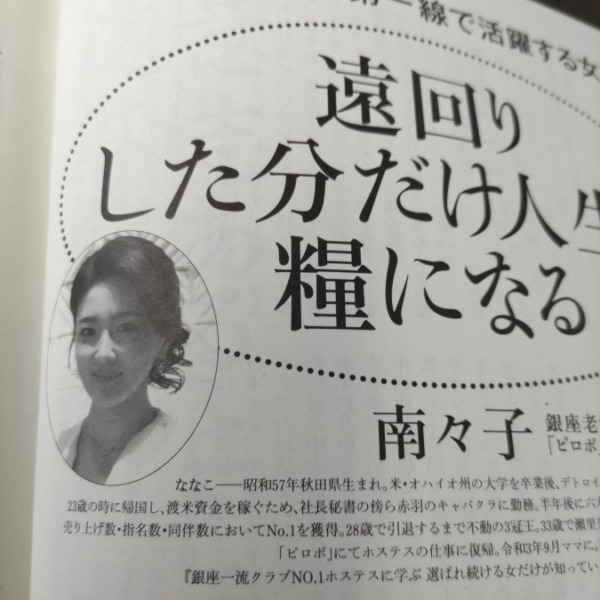 第一線で活躍する女
遠回り
した分だけ人生
糧になる
南々子
銀座老
「ピロポ」
ななこ――昭和57年秋田県生まれ。米・オハイオ州の大学を卒業後、デトロイ
23歳の時に帰国し、渡米資金を稼ぐため、社長秘書の傍ら赤羽のキャバクラに勤務。半年後に六本
売り上げ数・指名数・同伴数においてNo.1を獲得。28歳で引退するまで不動の3冠王。33歳で瀬里
「ピロポ」にてホステスの仕事に復帰。令和3年9月ママに。
『銀座一流クラブNO.1ホステスに学ぶ 選ばれ続ける女だけが知ってい